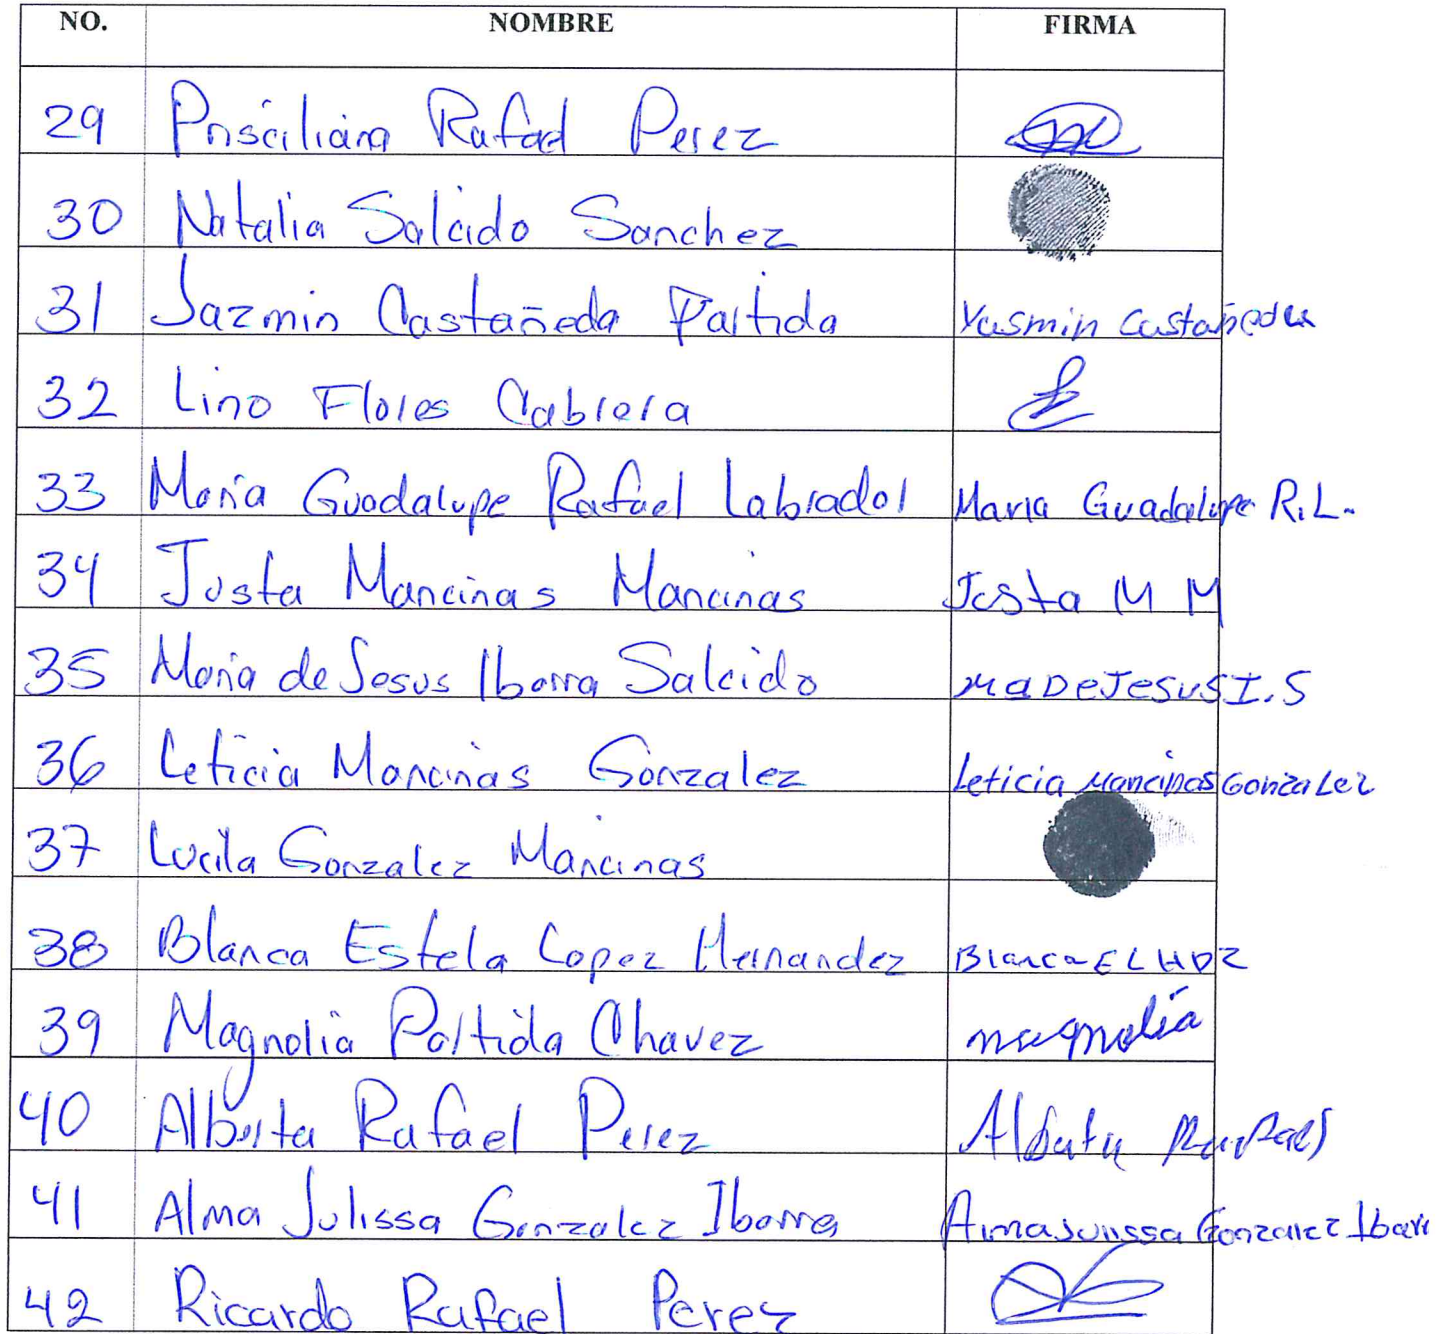 NO. NOMBRE FIRMA
29 Prisciliana Rafael Perez
30 Natalia Salcido Sanchez
31 Jazmin Castañeda Partida Yasmin Castañeda
32 Lino Flores Cabrera
33 Maria Guadalupe Rafael Labrador Maria Guadalupe R.L.
34 Justa Mancinas Mancinas Justa M M
35 Maria de Jesus Ibarra Salcido Ma De Jesus I.S
36 Leticia Mancinas Gonzalez Leticia Mancinas Gonzalez
37 Lucila Gonzalez Mancinas
38 Blanca Estela Lopez Hernandez Blanca E L HDZ
39 Magnolia Partida Chavez magnolia
40 Alberta Rafael Perez Alberta Rafael
41 Alma Julissa Gonzalez Ibarra Alma Julissa Gonzalez Ibarr
42 Ricardo Rafael Perez